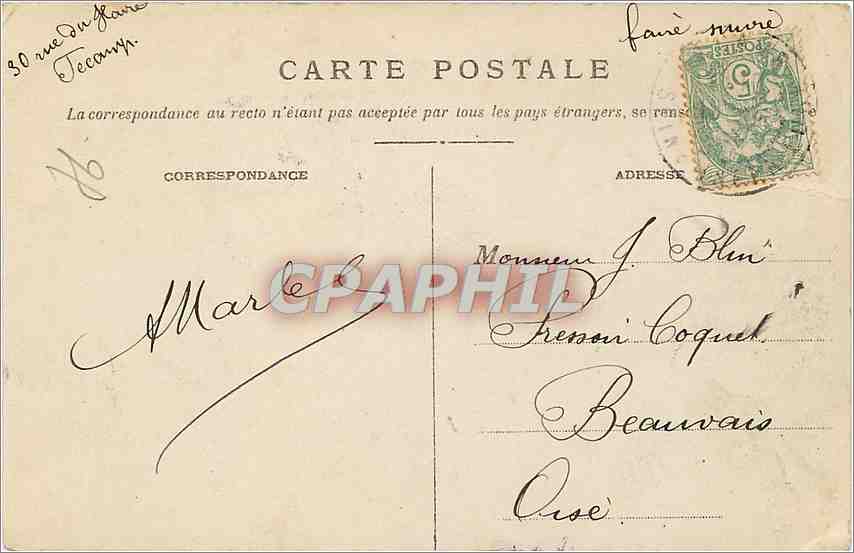 30 rue du Havre
Fecamp.
faire suivre
CARTE POSTALE
La correspondance au recto n'étant pas acceptée par tous les pays étrangers, se rens
POSTES
5
CORRESPONDANCE
ADRESSE
CPAPHIL
Monsieur J. Blin
Pressoir Coquet
Beauvais
Oise